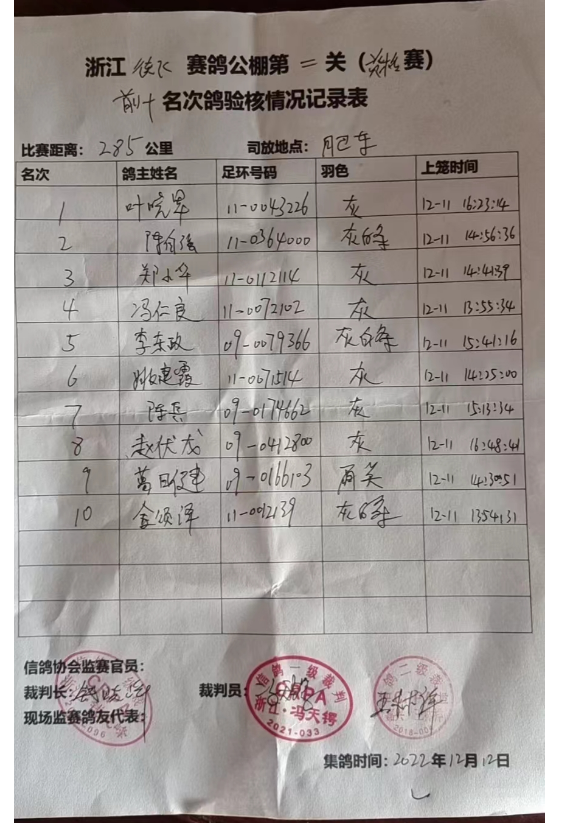 浙江 赛鸽公棚第二关（资格赛）
前十名次鸽验核情况记录表
比赛距离：285公里 司放地点：肥东
名次 鸽主姓名 足环号码 羽色 上笼时间
1 叶晓军 11-0043226 灰 12-11 16:23:14
2 陈 强 11-0364000 灰白条 12-11 14:56:36
3 郑小华 11-0112114 灰 12-11 14:41:39
4 冯仁良 11-0072102 灰 12-11 13:55:34
5 李东政 09-0079366 灰白条 12-11 15:41:16
6 姚建霞 11-0071514 灰 12-11 14:25:00
7 陈兵 09-0174662 灰 12-11 15:13:34
8 赵伏龙 09-0412800 灰 12-11 16:48:41
9 葛 建 09-0166103 12-11 14:30:51
10 金颂泽 11-0012139 灰白条 12-11 1354131
信鸽协会监赛官员：
裁判长： 裁判员：
现场监赛鸽友代表：
信鸽一级裁判
CRPA
浙江·冯天得
2021-033
信鸽二级裁判
集鸽时间：2022年12月12日